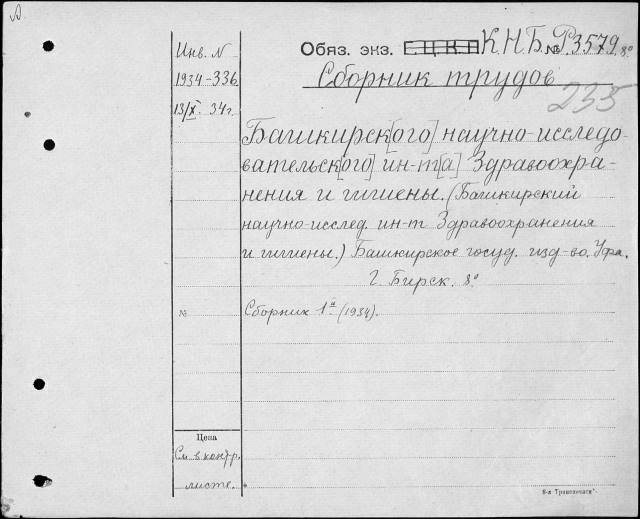 Инв. N
1934-336.
13/X. 34г.
Обяз. экз. Г.Ц.К.П К.Н.Б. № Р.3579. 8°
Сборник трудов
235
Башкирск[ого] научно-исследо-
вательск[ого] ин-т[а] Здравоохра-
нения и гигиены. (Башкирский
научно-исслед. ин-т Здравоохранения
и гигиены.) Башкирское госуд. изд-во. Уфа.
г. Бирск. 8°
№ Сборник 1й (1934).
Цена
См. в контр.
листе.
6-я Транспечати